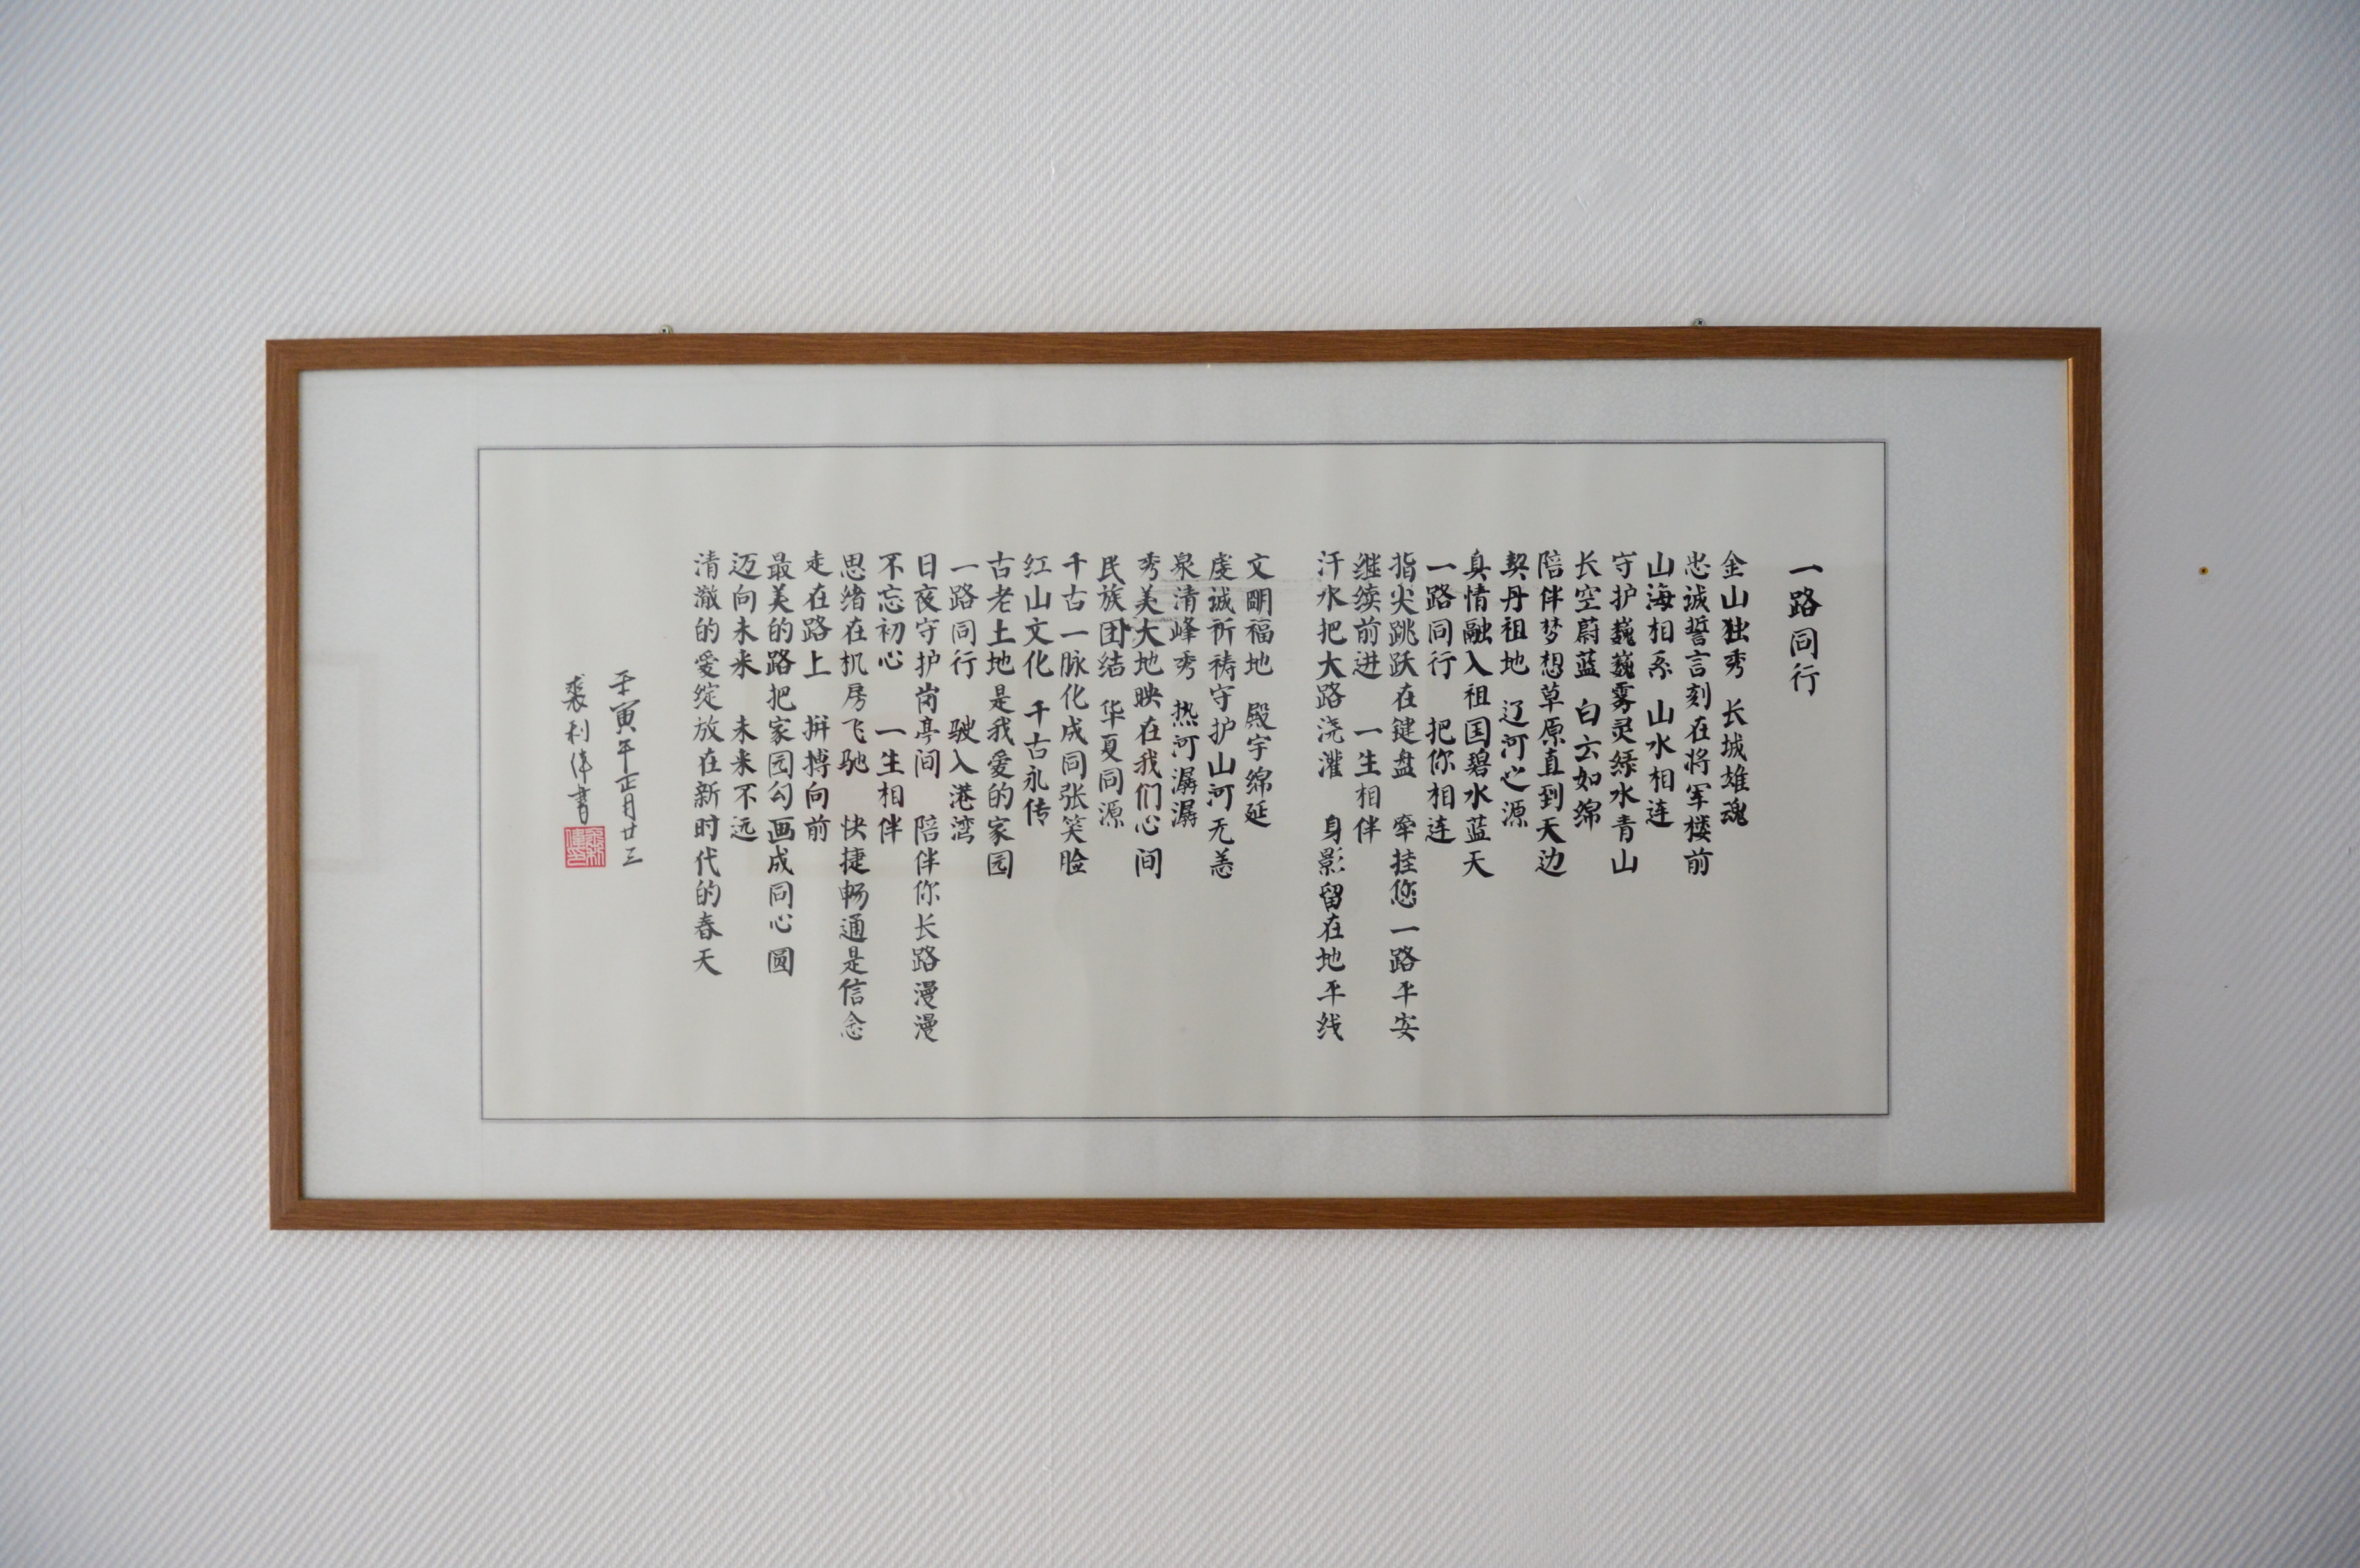 一路同行
金山独秀 长城雄魂
忠诚誓言刻在将军楼前
山海相系 山水相连
守护巍巍雾灵绿水青山
长空蔚蓝 白云如绵
陪伴梦想草原直到天边
契丹祖地 辽河之源
真情融入祖国碧水蓝天
一路同行 把你相连
指尖跳跃在键盘 牵挂您一路平安
继续前进 一生相伴
汗水把大路浇灌 身影留在地平线
文明福地 殿宇绵延
虔诚祈祷守护山河无恙
泉清峰秀 热河潺潺
秀美大地映在我们心间
民族团结 华夏同源
千古一脉化成同张笑脸
红山文化 千古永传
古老土地是我爱的家园
一路同行 驶入港湾
日夜守护岗亭间 陪伴你长路漫漫
不忘初心 一生相伴
思绪在机房飞驰 快捷畅通是信念
走在路上 拼搏向前
最美的路把家园勾画成同心圆
迈向未来 未来不远
清澈的爱绽放在新时代的春天
壬寅年正月廿三
裘利伟書